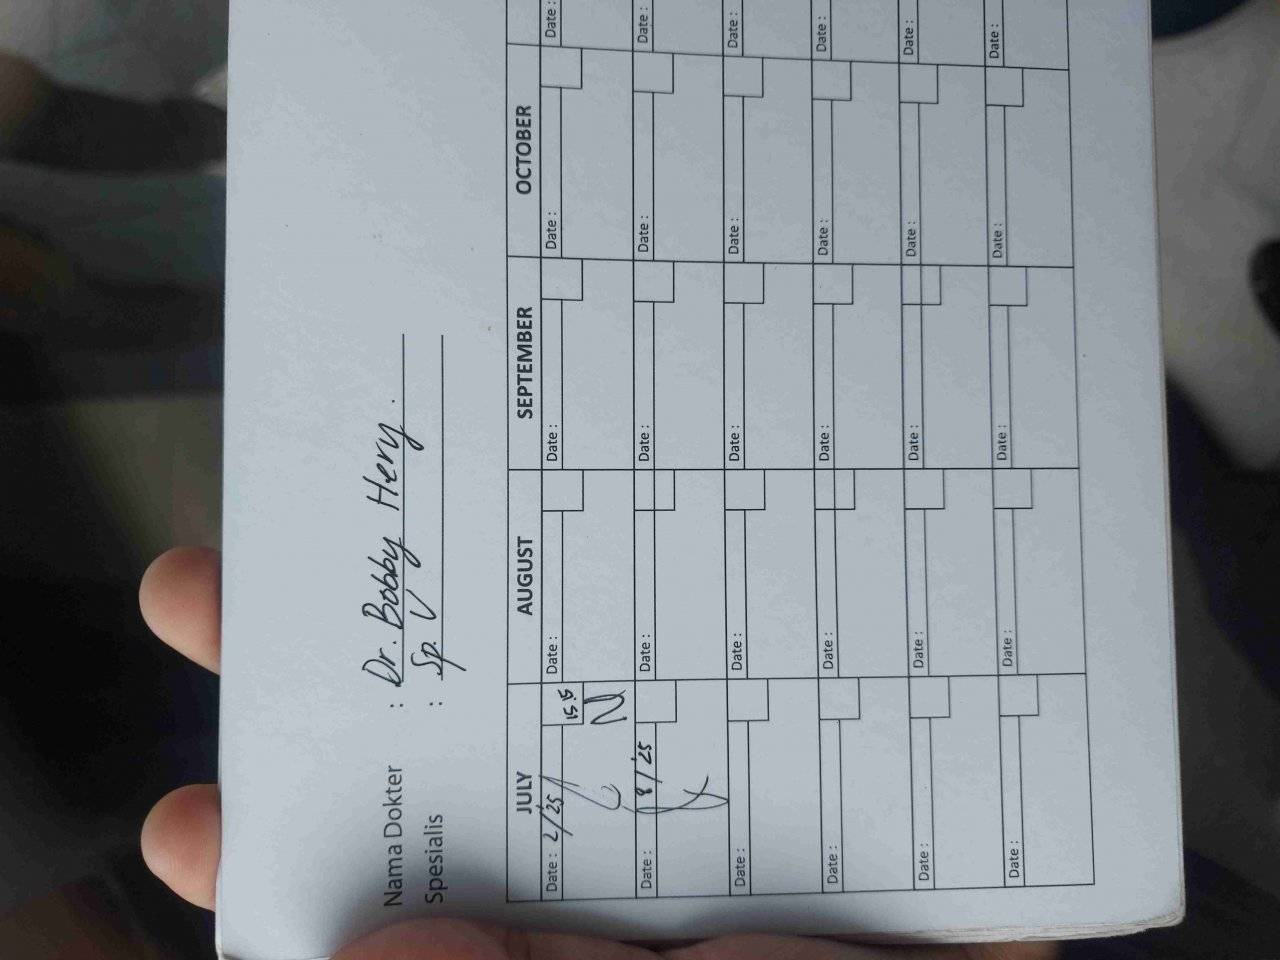 Nama Dokter : Dr. Bobby Hery.
Spesialis : Sp. V
JULY AUGUST SEPTEMBER OCTOBER
Date : 2/'25 15.15 Date : Date : Date : Date :
Date : 8/'25 Date : Date : Date : Date :
Date : Date : Date : Date : Date :
Date : Date : Date : Date : Date :
Date : Date : Date : Date : Date :
Date : Date : Date : Date : Date :